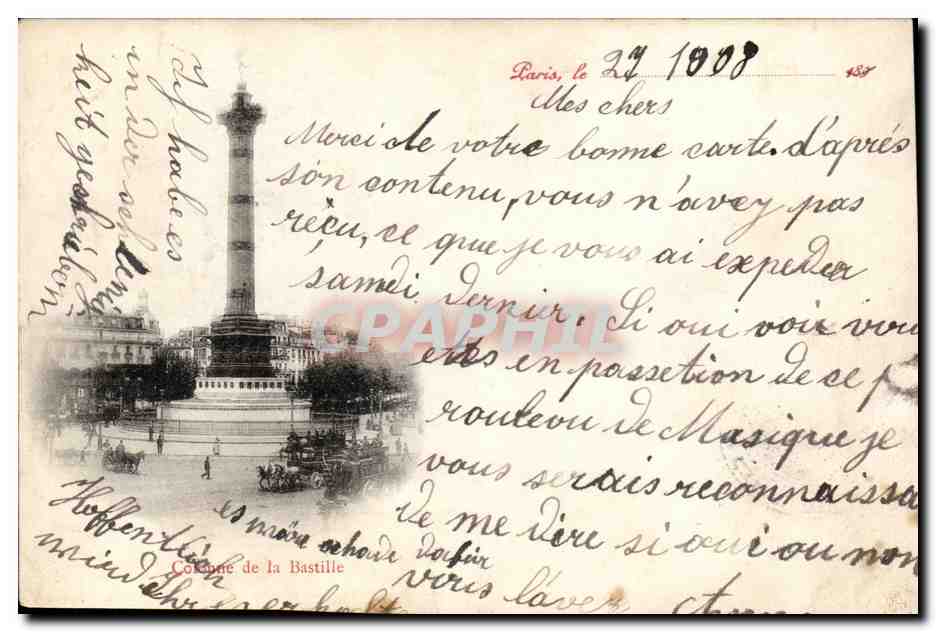 Paris, le 27 1908 189
Mes chers
Merci de votre bonne carte. d'après
son contenu, vous n'avez pas
réçu, ce que je vous ai expedier
samdi dernier. Si oui voir vous
etes en passetion de ce p
rouleou de Masique je
vous serais reconnaissa
de me dire si oui ou non
vous l'avez
Ich habe es
in der
heit
es wäre schade dafür
Hoffentlich
Colonne de la Bastille
CPAPHIL